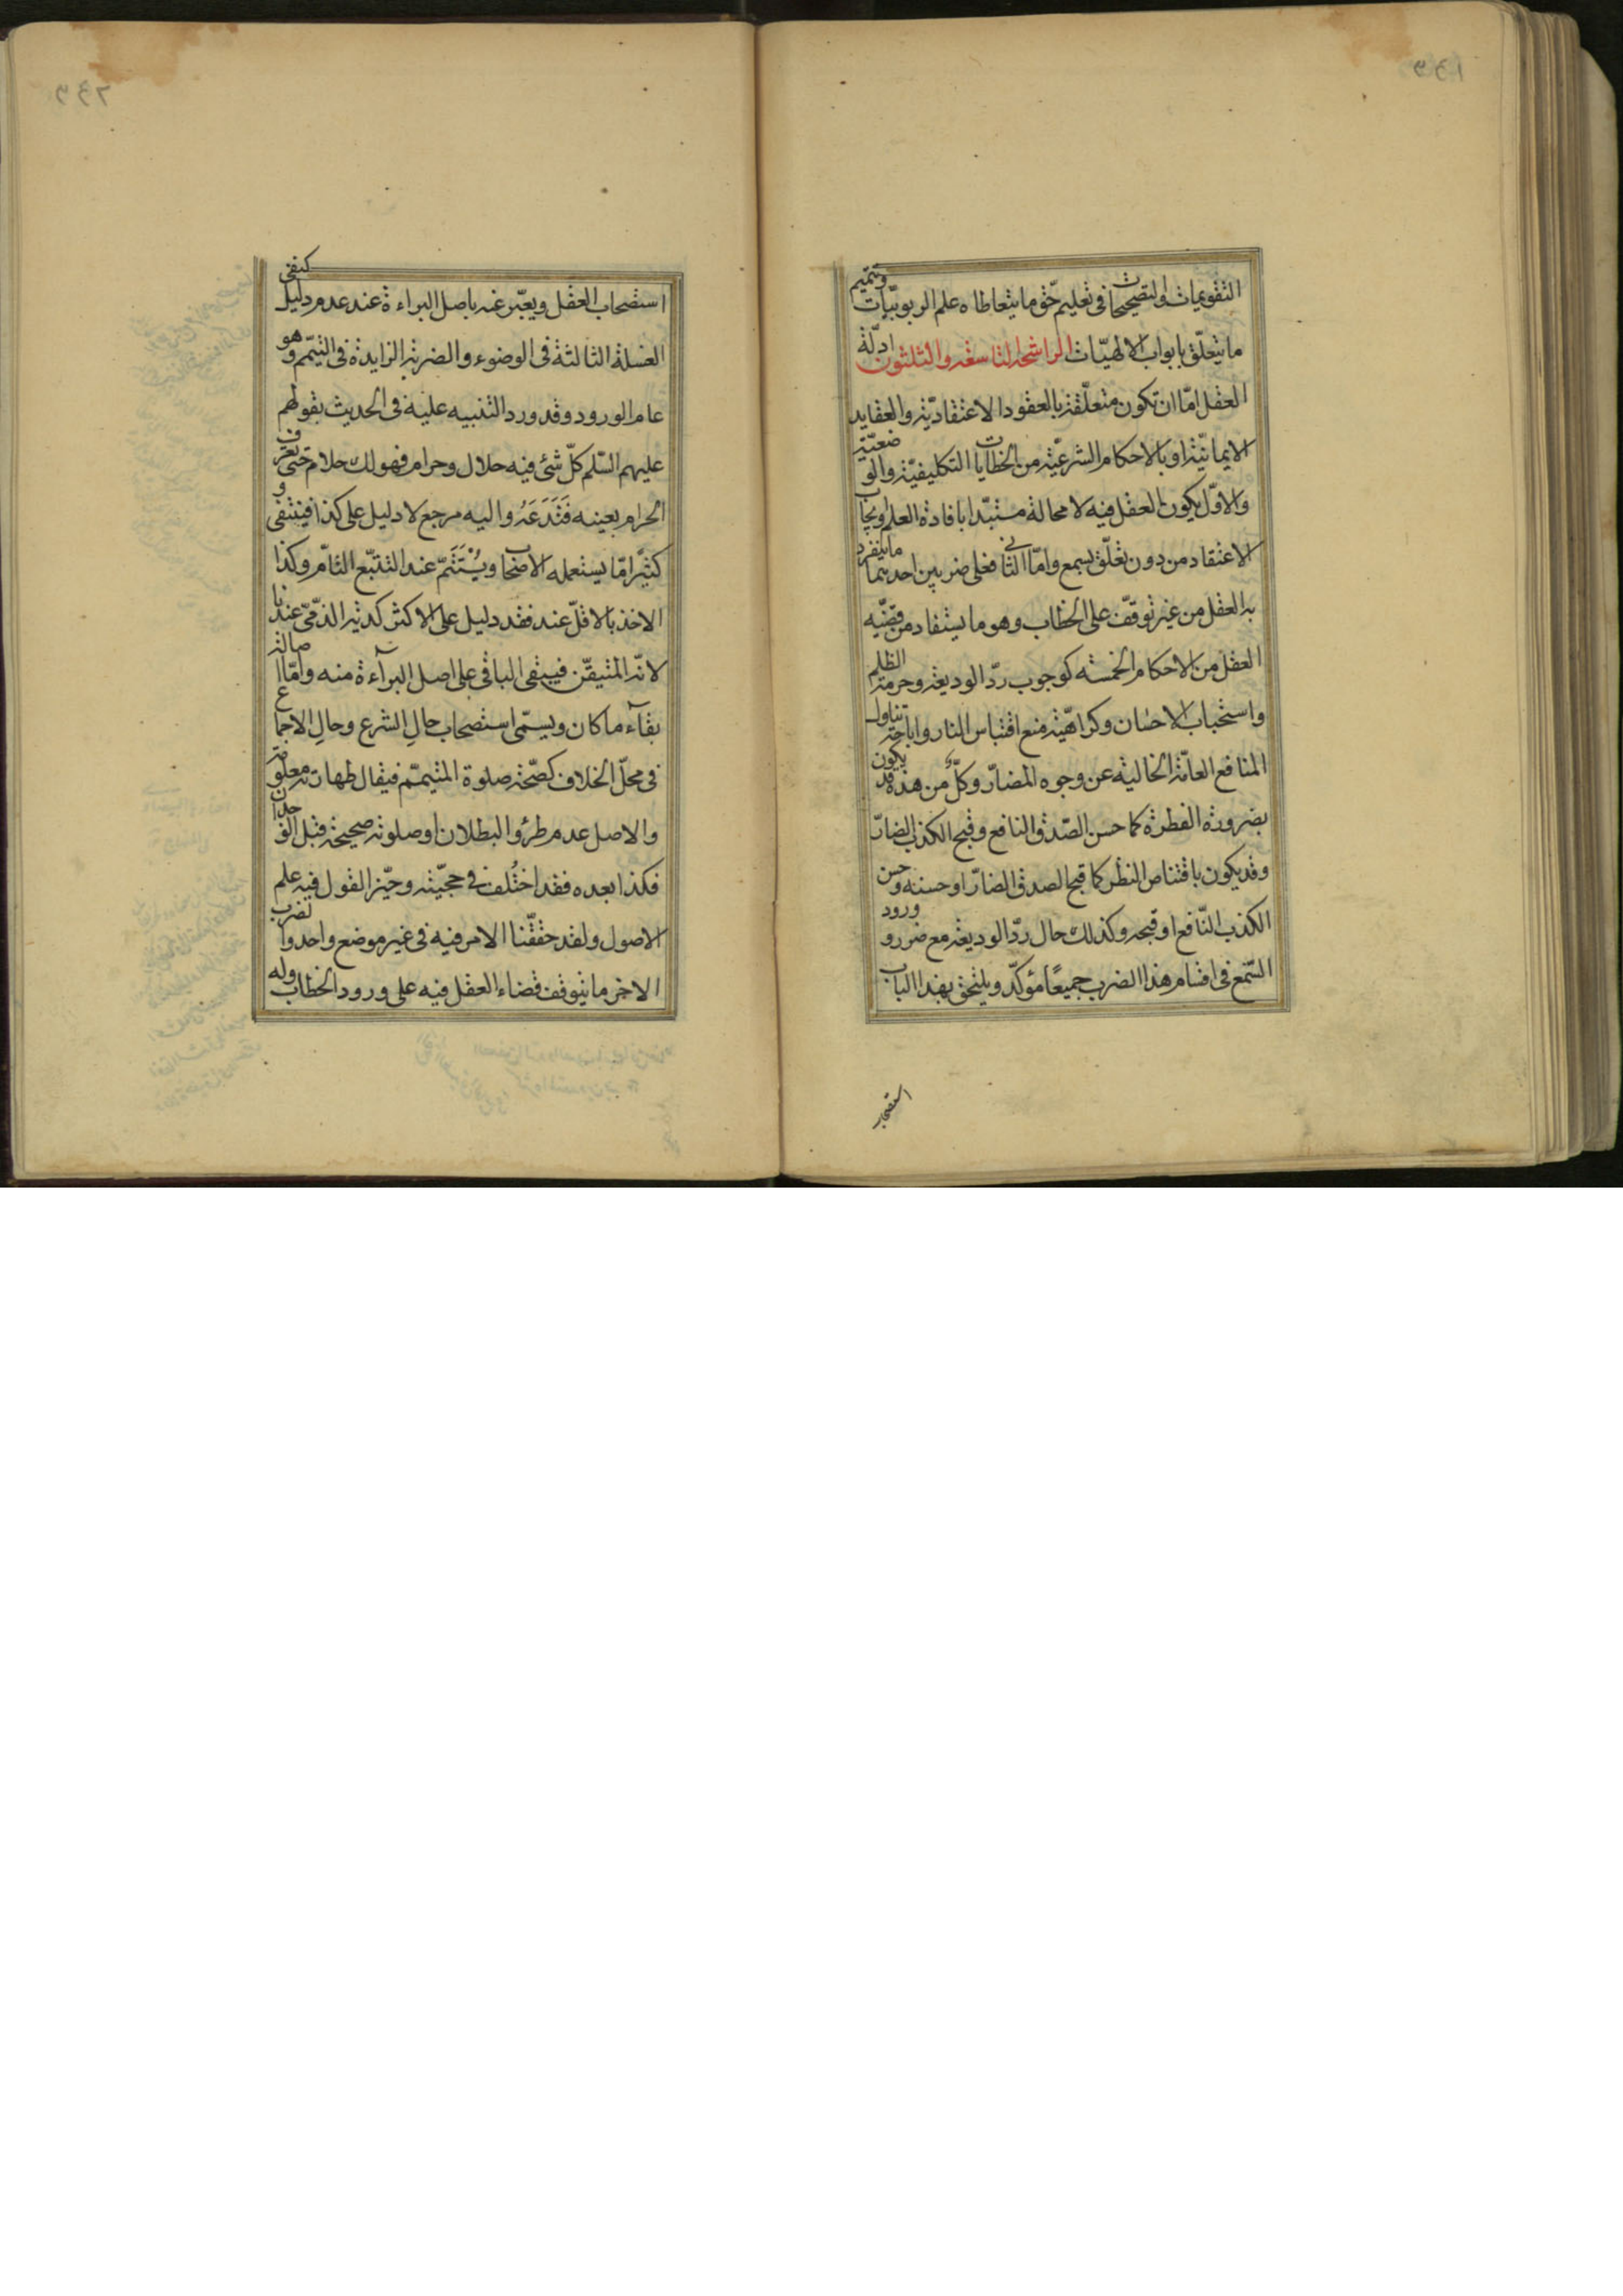 التقويمات والتصحيحات فى تعليم حق ما يتعاطاه علم الربوبيّات وتتميم
ما يتعلّق بابواب الالهيّات الراشحة التاسعة والثلثون ادلّة
العقل امّا ان تكون متعلّقة بالعقود الاعتقاديّة والعقايد
الايمانيّة او بالاحكام الشرعيّة من الخطابات التكليفيّة والوضعيّة
والاوّل يكون العقل فيه لا محالة مستبدّا بافادة العلم وايجاب
الاعتقاد من دون تعلّق بسمع وامّا الثانى فعلى ضربين احديهما ما ينفرد
به العقل من غير توقّف على الخطاب وهو ما يستفاد من قضيّه
العقل من الاحكام الخمسة كوجوب ردّ الوديعة وحرمة الظلم
واستحباب الاحسان وكراهيّة منع اقتباس النار واباحة تناول
المنافع العامّة الخالية عن وجوه المضارّ وكلّ من هذه قد يكون
بضرورة الفطرة كما حسن الصّدق النافع وقبح الكذب الضارّ
وقد يكون باقتناص النظر كما قبح الصدق الضارّ او حسنه وحسن
الكذب النّافع او قبحه وكذلك حال ردّ الوديعة مع ضرر وورود
السّمع فى اقسام هذا الضرب جميعًا مؤكّد ويلتحق بهذا الباب
استصحاب
استصحاب العقل ويعبّر عنه باصل البراءة عند عدم دليل كنفى
الغسلة الثالثة فى الوضوء والضربة الزايدة فى التيمّم وهو
عام الورود وقد ورد التنبيه عليه فى الحديث بقولهم
عليهم السّلم كلّ شئ فيه حلال وحرام فهو لك حلام حتى تعرف
الحرام بعينه فَتَدَعَهُ واليه مرجع لا دليل على كذا فينتفى و
كثيرًا مّا يستعمله الاصحاب ويُسْتَتَمّ عند التتبّع التامّ وكذا
الاخذ بالاقلّ عند فقد دليل على الاكثر كدية الذمّىّ عندنا
لانّه المتيقّن فيبقى الباقى على اصل البرآءة منه وامّا اصالة
بقآء ما كان ويسمّى استصحاب حالِ الشرع وحالِ الاجماع
فى محلّ الخلاف كصّحة صلوة المتيمّم فيقال طهارته معلومة
والاصل عدم طرؤ البطلان او صلوته صحيحة قبل الوجدان
فكذا بعده فقد اختُلف فى حجيّته وحيّز القول فيه علم
الاصول ولقد حقّقنا الامر فيه فى غير موضع واحد والضرب
الاخر ما يتوقف قضاء العقل فيه على ورود الخطاب وله